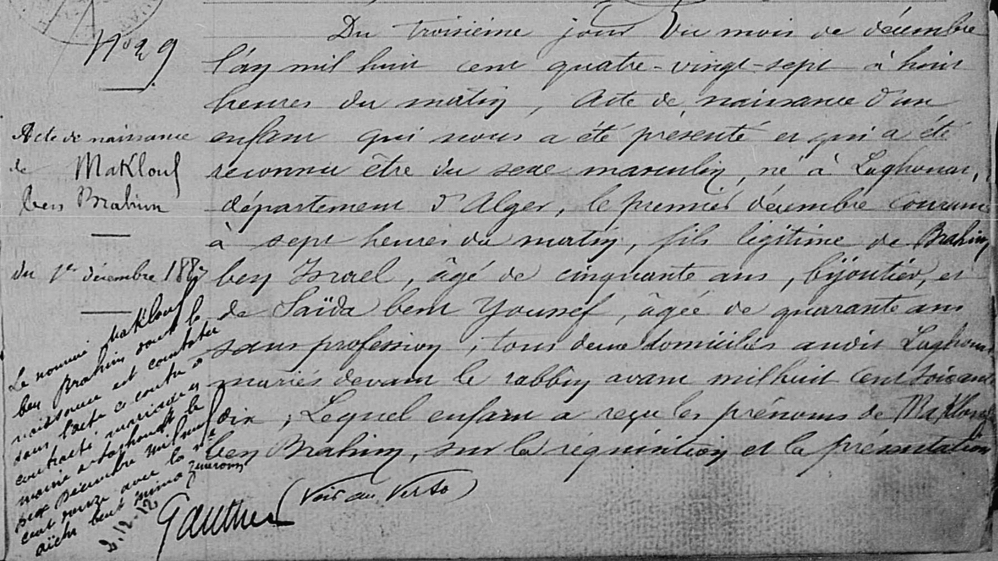 No 29
Acte de naissance
de Maklouf
ben Brahim
du 1er décembre 1887
Le nommé Maklouf
ben Brahim dont la
naissance est constatée
dans l'acte ci contre a
contracté mariage
mairie à le
deux Décembre mil neuf
cent douze avec la
aïcha bent
2.12.12
Du troisième jour du mois de décembre
l'an mil huit cent quatre-vingt-sept à huit
heures du matin, Acte de naissance d'un
enfant qui nous a été présenté et qui a été
reconnu être du sexe masculin, né à Laghouat,
département d'Alger, le premier décembre courant
à sept heures du matin, fils légitime de Brahim
ben Israel, âgé de cinquante ans, bijoutier, et
de Saïda bent Youssef, âgée de quarante ans
sans profession, tous deux domiciliés audit Laghouat
mariés devant le rabbin avant mil huit cent soixante
dix; Lequel enfant a reçu les prénoms de Maklouf
ben Brahim, sur la réquisition et la présentation
(Voir au Verso)